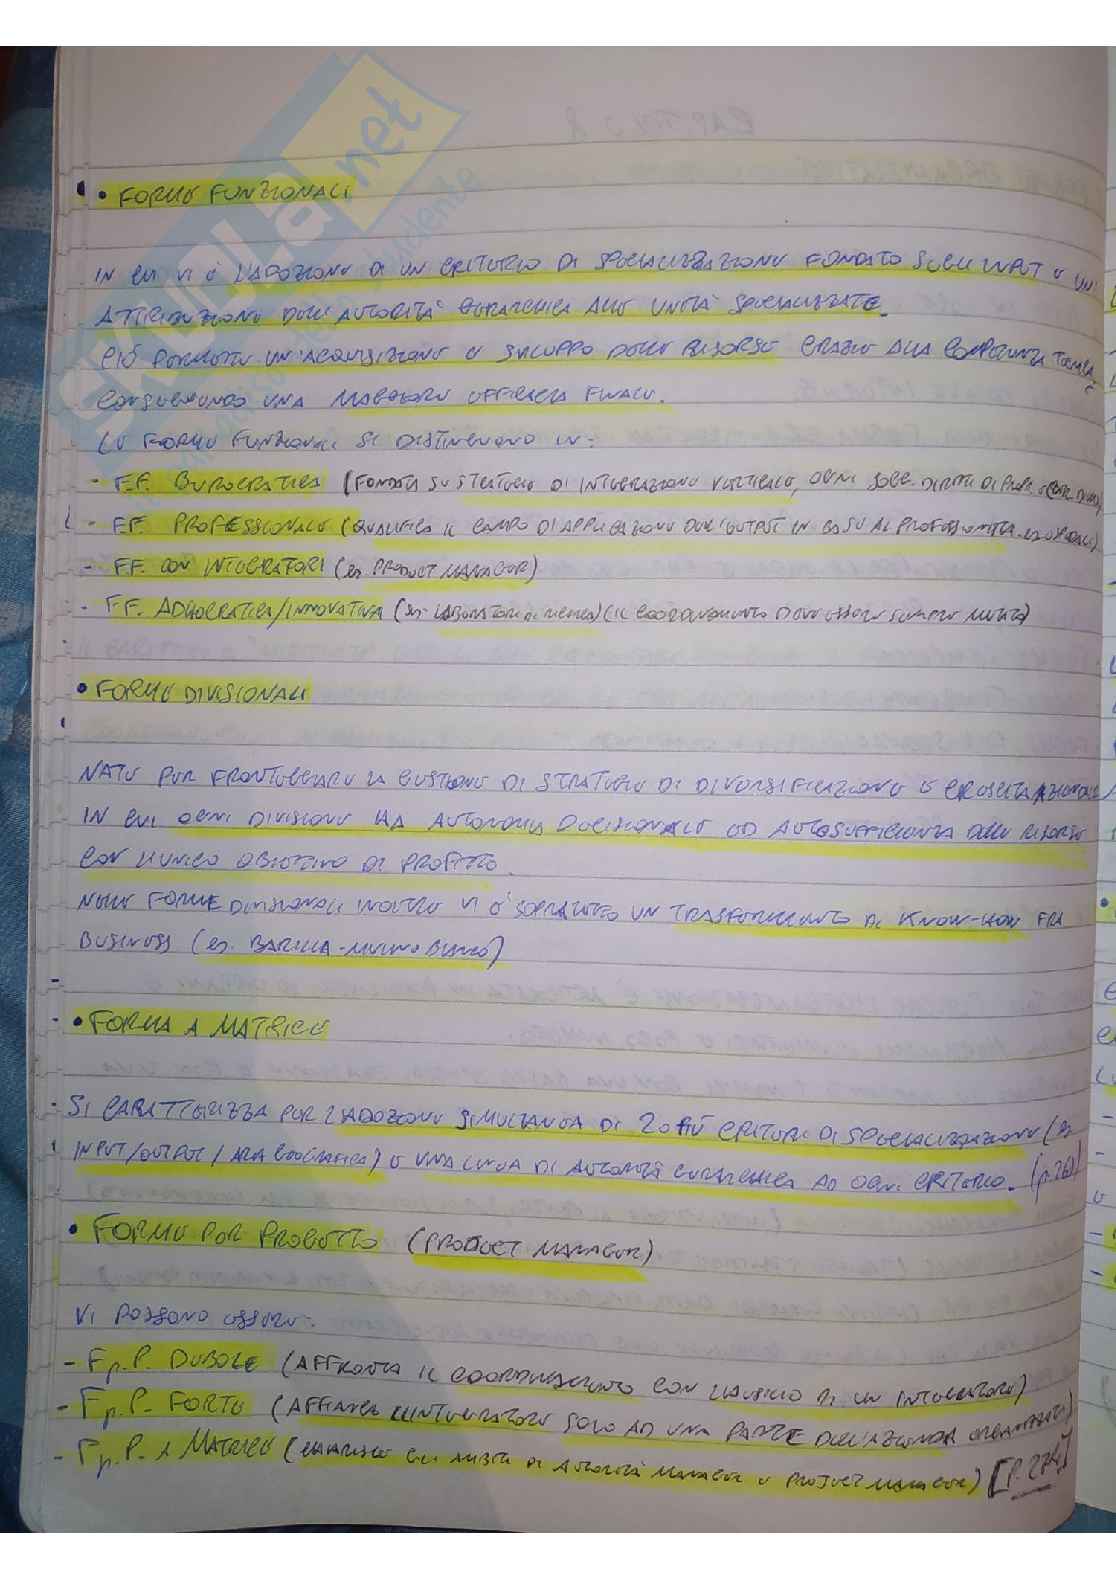 • FORME FUNZIONALI
IN CUI VI È L'ADOZIONE DI UN CRITERIO DI SPECIALIZZAZIONE FONDATO SUGLI INPUT E UN'
ATTRIBUZIONE DELL'AUTORITÀ GERARCHICA ALLE UNITÀ SPECIALIZZATE.
CIÒ PERMETTE UN'ACQUISIZIONE E SVILUPPO DELLE RISORSE GRAZIE ALLA COMPETENZA TECNICA,
CONSEGUENDO UNA MAGGIORE EFFICACIA FINALE.
LE FORME FUNZIONALI SI DISTINGUONO IN:
- F.F. BUROCRATICA (FONDATA SU STRATEGIE DI INTEGRAZIONE VERTICALE, OGNI
- F.F. PROFESSIONALE (QUALIFICA IL CAMPO DI APPLICAZIONE DELL'OUTPUT IN BASE AL PROFESSIONISTA es OSPEDALI)
- F.F. CON INTEGRATORI (es PRODUCT MANAGER)
- F.F. ADHOCRATICA/INNOVATIVA (es. LABORATORI DI RICERCA) (IL COORDINAMENTO DEVE ESSERE SEMPRE
• FORME DIVISIONALI
NATE PER FRONTEGGIARE LA GESTIONE DI STRATEGIE DI DIVERSIFICAZIONE E CRESCITA AZIENDALE
IN CUI OGNI DIVISIONE HA AUTONOMIA DECISIONALE ED AUTOSUFFICIENZA DELLE RISORSE
CON L'UNICO OBIETTIVO DI PROFITTO.
NELLE FORME DIVISIONALI INOLTRE VI È SOPRATUTTO UN TRASFERIMENTO DI KNOW-HOW FRA
BUSINESS (es. BARILLA-MULINO BIANCO)
• FORMA A MATRICE
SI CARATTERIZZA PER L'ADOZIONE SIMULTANEA DI 2 O PIÙ CRITERI DI SPECIALIZZAZIONE (es
INPUT/OUTPUT/AREA GEOGRAFICA) E UNA LINEA DI AUTORITÀ GERARCHICA AD OGNI CRITERIO. (p.261)
• FORME PER PROGETTO (PROJECT MANAGER)
VI POSSONO ESSERE:
- F.p.P. DEBOLE (AFFRONTA IL COORDINAMENTO CON L'AUSILIO DI UN INTEGRATORE)
- F.p.P. FORTE (AFFIANCA L'INTEGRATORE SOLO AD UNA PARTE DELL'AZIONE ORGANIZZATIVA)
- F.p.P. A MATRICE (CHIARISCE GLI AMBITI DI AUTORITÀ MANAGER E PROJECT MANAGER) [P.274]
SKUOLA.net